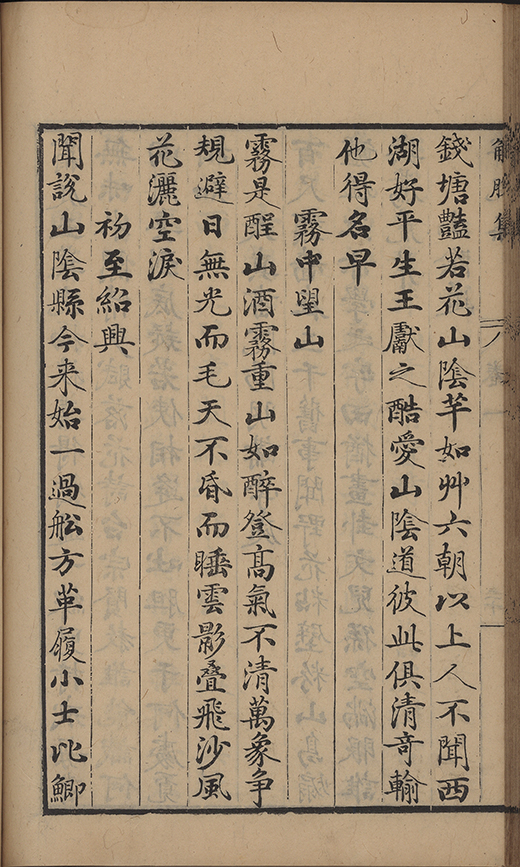 解脫集
錢塘豔若花山陰芊如艸六朝以上人不聞西
湖好平生王獻之酷愛山陰道彼此俱清奇輸
他得名早
霧中望山
霧是酲山酒霧重山如醉登高氣不清萬象爭
規避日無光而毛天不昏而睡雲影疊飛沙風
花灑空淚
初至紹興
聞說山陰縣今来始一過舩方革履小士比鯽